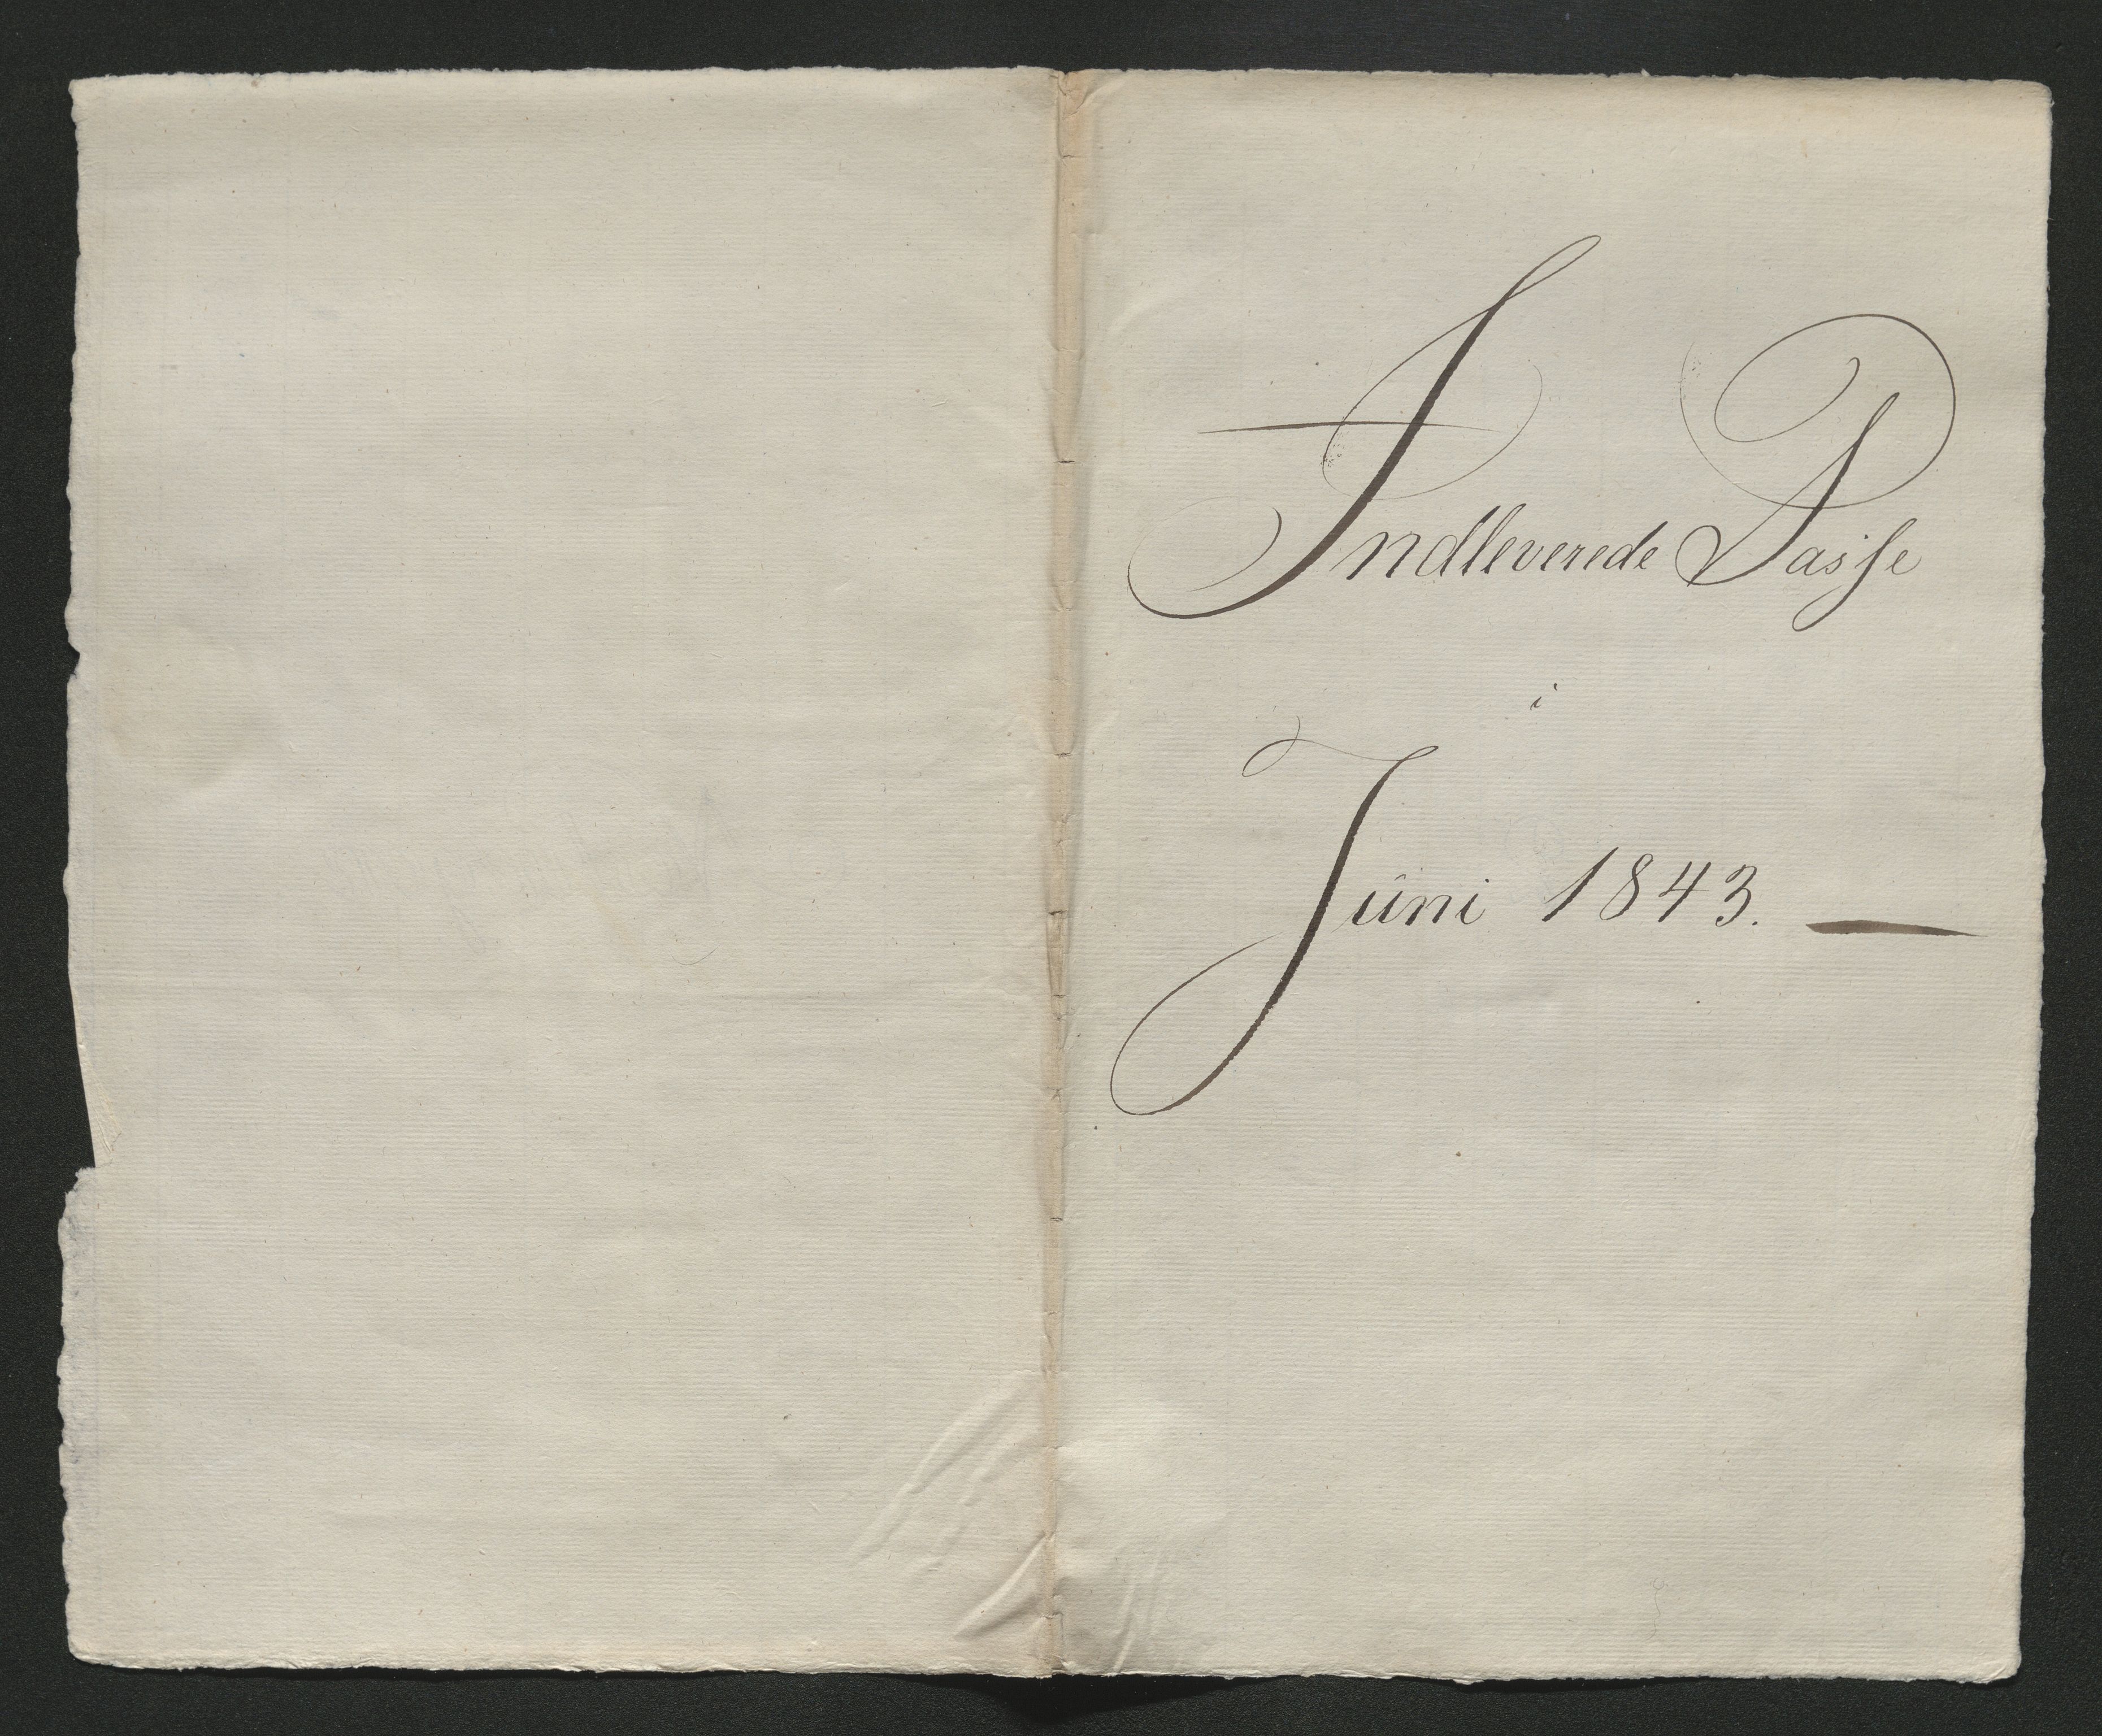 Indleverede Passe
i
Juni 1843.